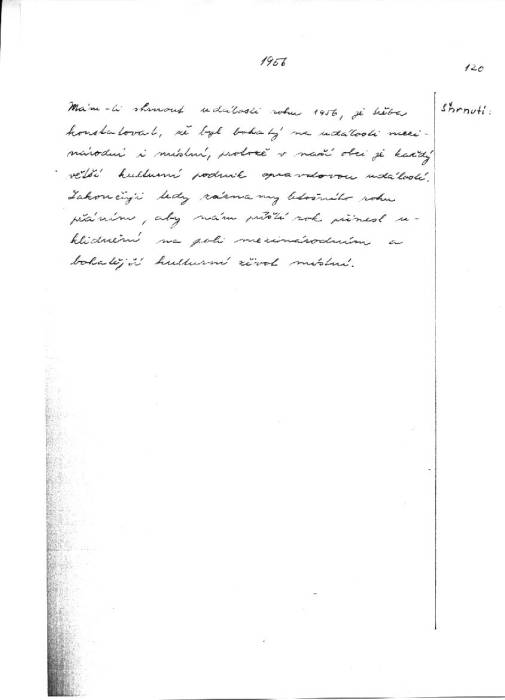 1956
120
Mám-li shrnout události roku 1956, je třeba
konstatovat, že byl bohatý na události mezi-
národní i místní, protože v naší obci je každý
větší kulturní podnik opravdovou událostí.
Zakončuji tedy záznamy letošního roku
přáním, aby nám příští rok přinesl u-
klidnění na poli mezinárodním a
bohatější kulturní život místní.
Shrnutí: